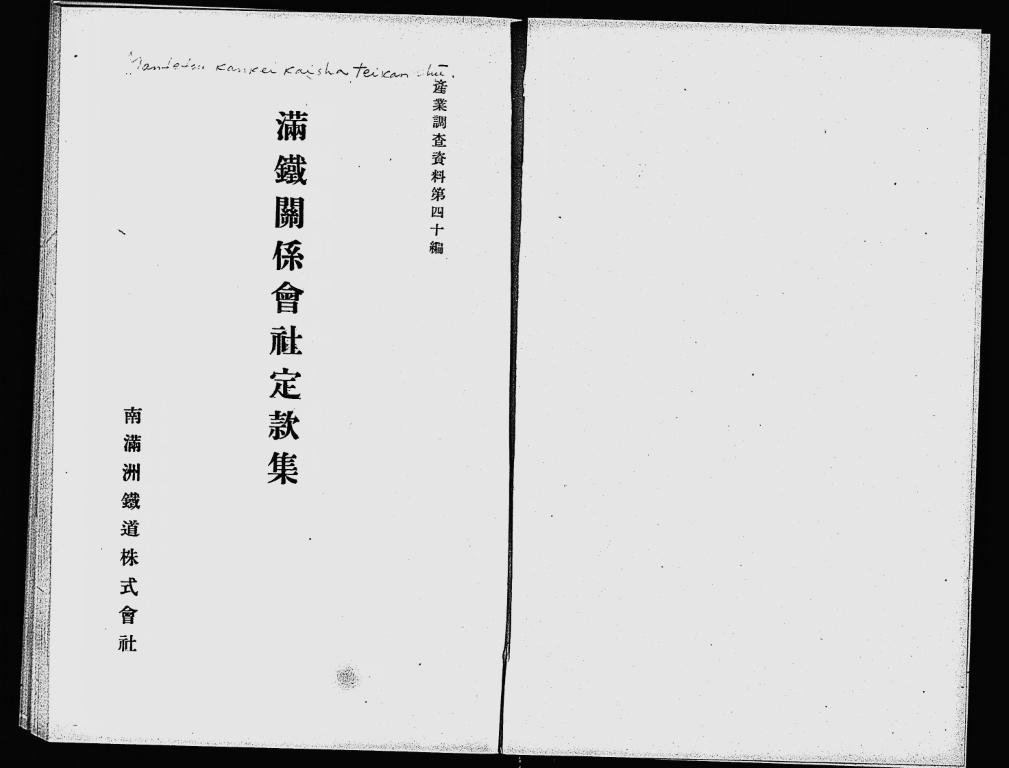 Mantetsu kankei kaisha teikan shū.
産業調査資料第四十編
滿鐵關係會社定款集
南滿洲鐵道株式會社